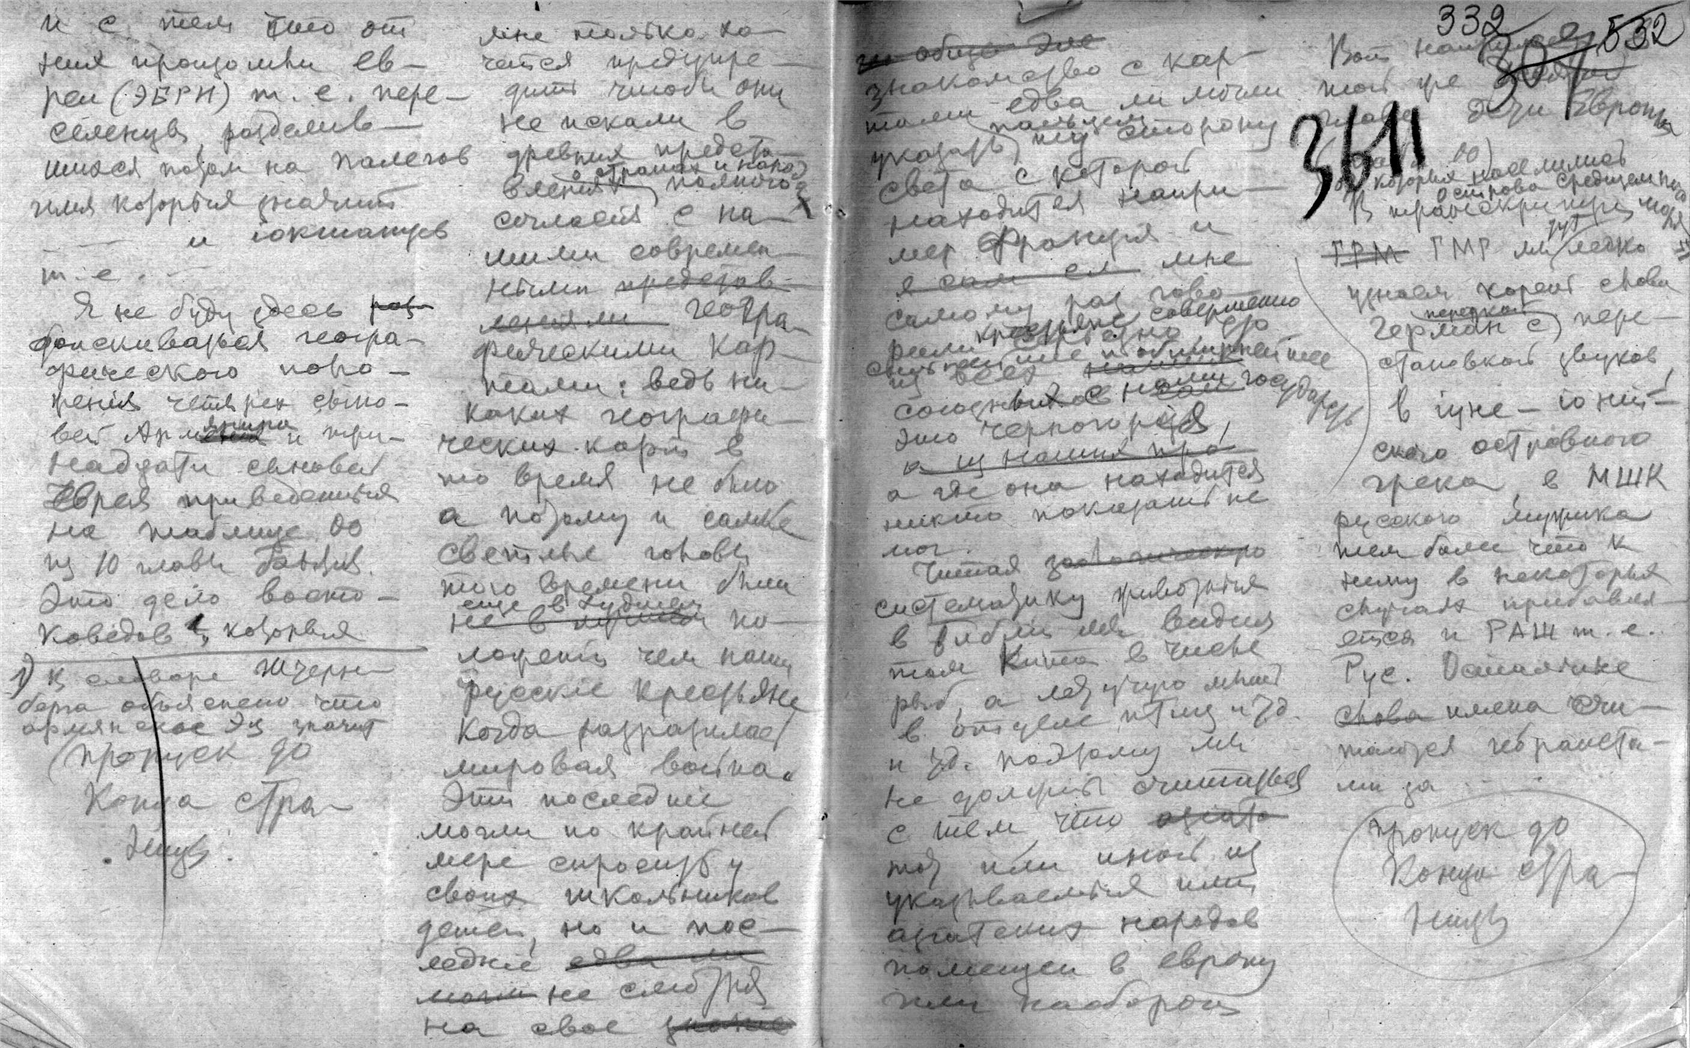 и с тем что от
ния произошли ев-
реи (ЭБРН) т. е. пере-
селенцы, разделив-
шиеся потом на Палегов
имя которых значит
и Іокшанцев
т. е.
Я не буду здесь
доискиваться геогра-
фического поло-
жения четырех сыно-
вей Арама и три-
надцати сыновей
Еврея приведенных
на таблице
из 10 главы Бытия.
Это дело восто-
коведов, которых
1) К словаре
берга объяснено что
армянское значит
(пропуск до
конца стра-
ницы.
мне только хо-
чется предупре-
дить чтобы они
не искали в
древних предста-
влениях о странах и народах полного
согласия с на-
шими современ-
ными представ-
лениями геогра-
фическими кар-
тами: ведь ни-
каких географи-
ческих карт в
то время не было
а потому и самые
светлые головы
того времени были
еще в худшем
не в лучшем по-
ложении чем наши
русские крестьяне
когда разразилась
мировая война.
Эти последние
могли по крайней
мере спросить у
своих школьников
детей, но и пос-
ледние едва ли
могли не смотря
на свое знание
вообще
знакомство с кар-
тами едва ли могли
указать пальцем ту сторону
света с которой
находится напри-
мер Франция и
я сам ел мне
самому раз гово-
рили крестьяне совершенно серьезно что
из всех
соседних с нами государств
это Черногория,
а из наших про
а где она находится
никто показать не
мог.
Читая зоологическую
систематику животных
в библии мы видим
там Кита в числе
рыб, а летучую мышь
в отделе птиц и т.д.
и т.д. поэтому мы
не должны считаться
с тем что
тот или иной из
указываемых ими
азиатских народов
помещен в Европу
или наоборот
332
532
3611
Вот например
той же
главе Дети Европы
от которых населились
острова Средиземного моря
В транскрипции
ГРМ ГМР мы тут легко
узнаем корень слова
Герман с передкой пере-
становкой звуков,
в іуне — іоній-
ского островного
грека, в МШК
русского мужика
тем более что к
нему в некоторых
случаях прибавля-
ется и РАШ т. е.
Рус. Остальные
слова имена счи-
таются гебраиста-
ми за
пропуск до
конца стра-
ницы